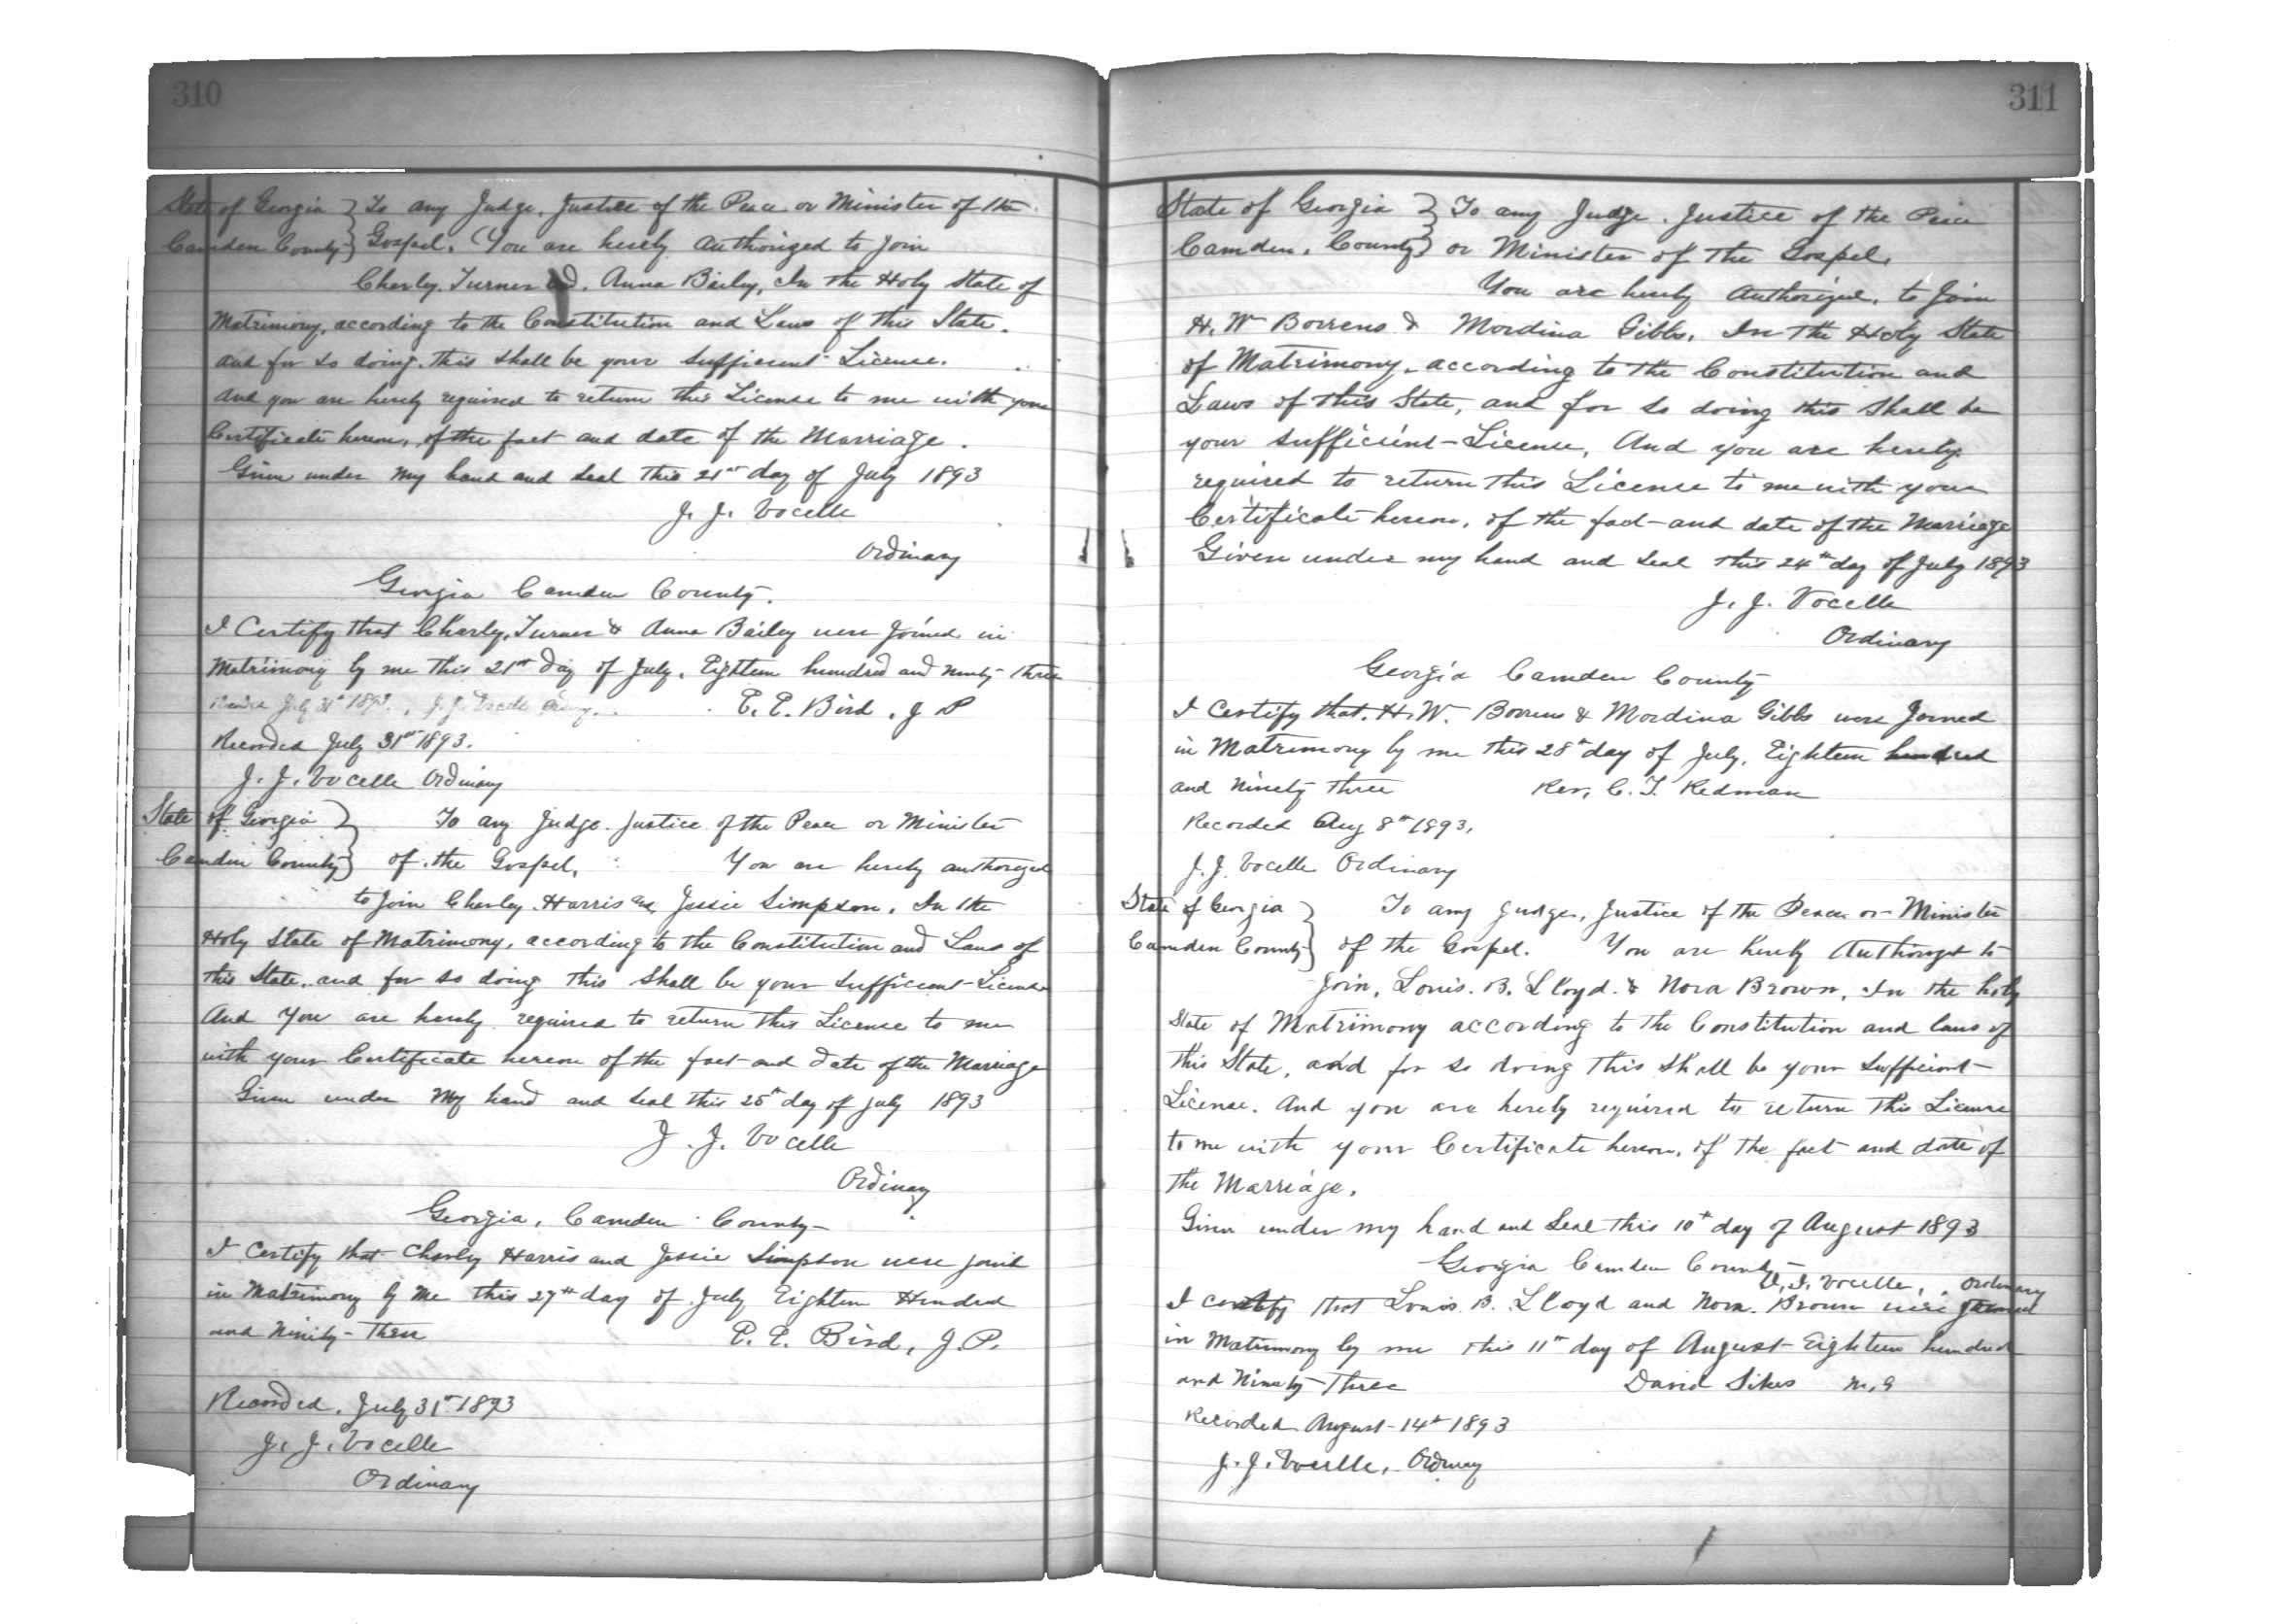 310
State of Georgia } To any Judge, Justice of the Peace or Minister of the
Camden County } Gospel. You are hereby authorized to join
Charley Turner and Anna Bailey, In the Holy State of
Matrimony, according to the Constitution and Laws of this State.
and for so doing this shall be your sufficient License.
And you are hereby required to return this License to me with your
Certificate hereon, of the fact and date of the Marriage.
Given under my hand and seal this 21st day of July 1893
J. J. Vocelle
Ordinary
Georgia Camden County.
I Certify that Charley Turner & Anna Bailey were Joined in
Matrimony by me this 21st day of July, Eighteen hundred and ninety three
E. E. Bird, J P
July 31st 1893. J. J. Vocelle
Recorded July 31st 1893.
J. J. Vocelle Ordinary
State of Georgia } To any Judge, Justice of the Peace or Minister
Camden County } of the Gospel. You are hereby authorized
to join Charley Harris and Jessie Simpson, In the
Holy State of Matrimony, according to the Constitution and Laws of
this State, and for so doing this shall be your sufficient License
And You are hereby required to return this License to me
with your Certificate hereon of the fact and date of the Marriage
Given under my hand and seal this 25th day of July 1893
J. J. Vocelle
Ordinary
Georgia, Camden County
I Certify that Charley Harris and Jessie Simpson were joined
in Matrimony by me this 27th day of July Eighteen Hundred
and Ninety-Three E. E. Bird, J. P.
Recorded, July 31st 1893
J. J. Vocelle
Ordinary
311
State of Georgia } To any Judge, Justice of the Peace
Camden, County } or Minister of the Gospel,
You are hereby Authorized, to Join
H. W Borrens & Mordina Gibbs, In the Holy State
of Matrimony, according to the Constitution and
Laws of this State, and for so doing this shall be
your sufficient License, And you are hereby
required to return this License to me with your
Certificate hereon, of the fact and date of the Marriage
Given under my hand and seal this 24th day of July 1893
J. J. Vocelle
Ordinary
Georgia Camden County
I Certify that, H. W. Borrens & Mordina Gibbs were Joined
in Matrimony by me this 28th day of July, Eighteen hundred
and Ninety three Rev, C. T. Redman
Recorded Aug 8th 1893,
J. J. Vocelle Ordinary
State of Georgia } To any Judge, Justice of the Peace or Minister
Camden County } of the Gospel. You are hereby Authorized to
Join, Louis. B. Lloyd. & Nora Brown, In the holy
State of Matrimony according to the Constitution and laws of
this State, and for so doing this shall be your sufficient
License. And you are hereby required to return this License
to me with your Certificate hereon, of the fact and date of
the Marriage.
Given under my hand and Seal this 10th day of August 1893
Georgia Camden County
J. J. Vocelle, Ordinary
I certify that Louis B. Lloyd and Nora. Brown were Joined
in Matrimony by me this 11th day of August Eighteen hundred
and Ninety-Three David Sikes M. G
Recorded August 14th 1893
J. J. Vocelle, Ordinary